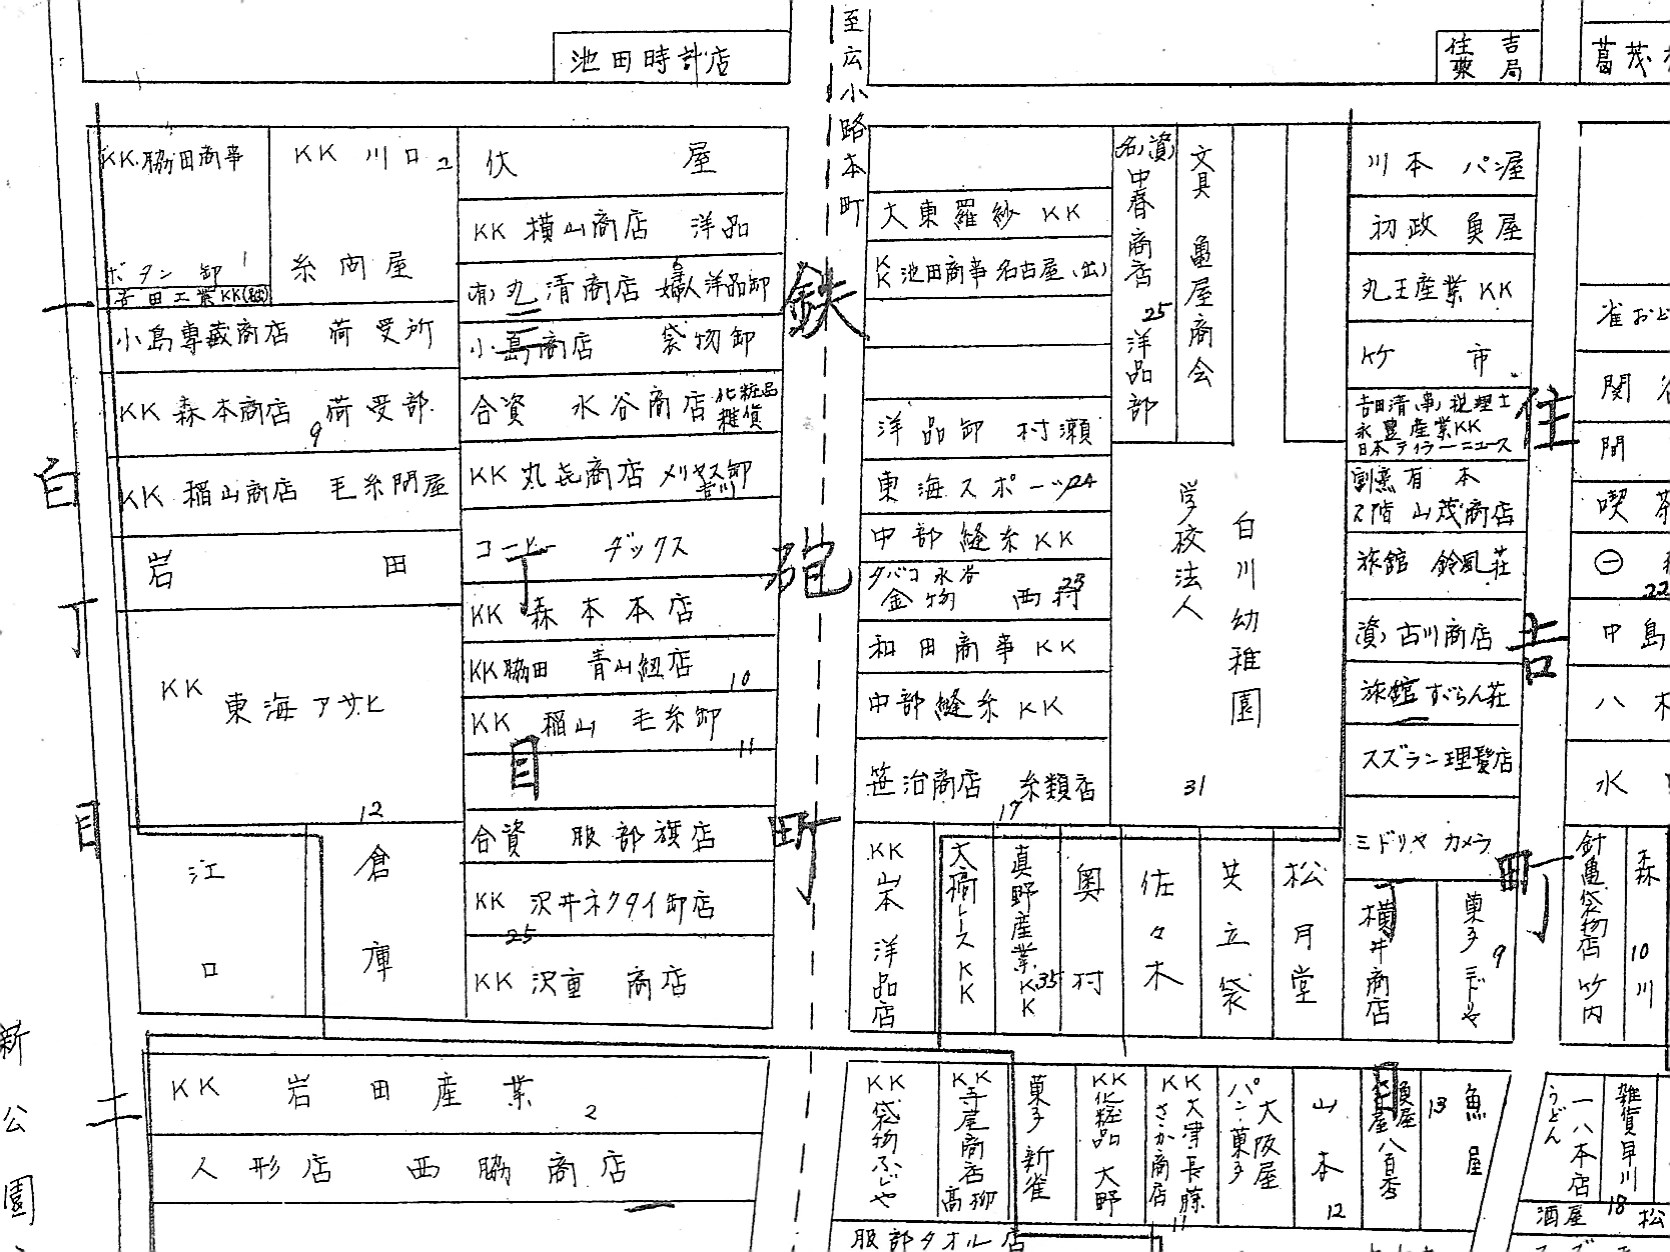 池田時計店
至広小路本町
住吉
薬局
葛茂
KK.脇田商事
ボタン卸 1
KK 川口 2
糸問屋
吉田工業KK
小島専蔵商店 荷受所
KK 森本商店 荷受部
9
KK 稲山商店 毛糸問屋
岩田
KK
東海アサヒ
12
江口
倉庫
伏屋
KK 横山商店 洋品
(有)丸清商店 婦人洋品卸
6
小島商店 袋物卸
合資 水谷商店 化粧品
雑貨
KK 丸㐂商店 メリヤス卸
吉川
コートー ダックス
KK 森本本店
KK脇田 青山紐店
10
KK 稲山 毛糸卸
11
合資 服部旗店
KK 沢井ネクタイ卸店
25
KK 沢重 商店
鉄砲町
一丁目
白
丁
目
大東羅紗 KK
KK 池田商事 名古屋(出)
洋品卸 村瀬
東海スポーツ 24
中部縫糸KK
タバコ 水谷
金物 西村
23
和田商事KK
中部縫糸KK
笹治商店 糸類店
17
名(資)中春商店 洋品部
25
文具 亀屋商会
学校法人
白川幼稚園
31
川本 パン屋
初政 魚屋
丸王産業KK
竹市
吉田清(事) 税理士
永豊産業KK
日本テイラーニュース
割烹 有本
2階 山茂商店
旅館 鈴風荘
(資)古川商店
旅館 すゞらん荘
スズラン理髪店
ミドリヤ カメラ
住吉町
丁
目
KK 山本 洋品店
大橋レースKK
真野産業KK
35
奥村
佐々木
共立袋
松月堂
横井商店
菓子 ミドリヤ
9
雀おど
関谷
関
喫茶
㊀
22
中島
八木
水
針亀袋物店 竹内
森
10
川
新公園
二
KK 岩田産業
2
人形店 西脇商店
KK 袋物ふじや
KK 寺屋商店 高柳
菓子 新雀
KK 化粧品 大野
KK 大津長藤
さか商店
11
大阪屋
パン・菓子
山本
12
魚屋
八百秀
13
魚屋
一八本店
うどん
雑貨早川
18
服部タオル店
酒屋
松